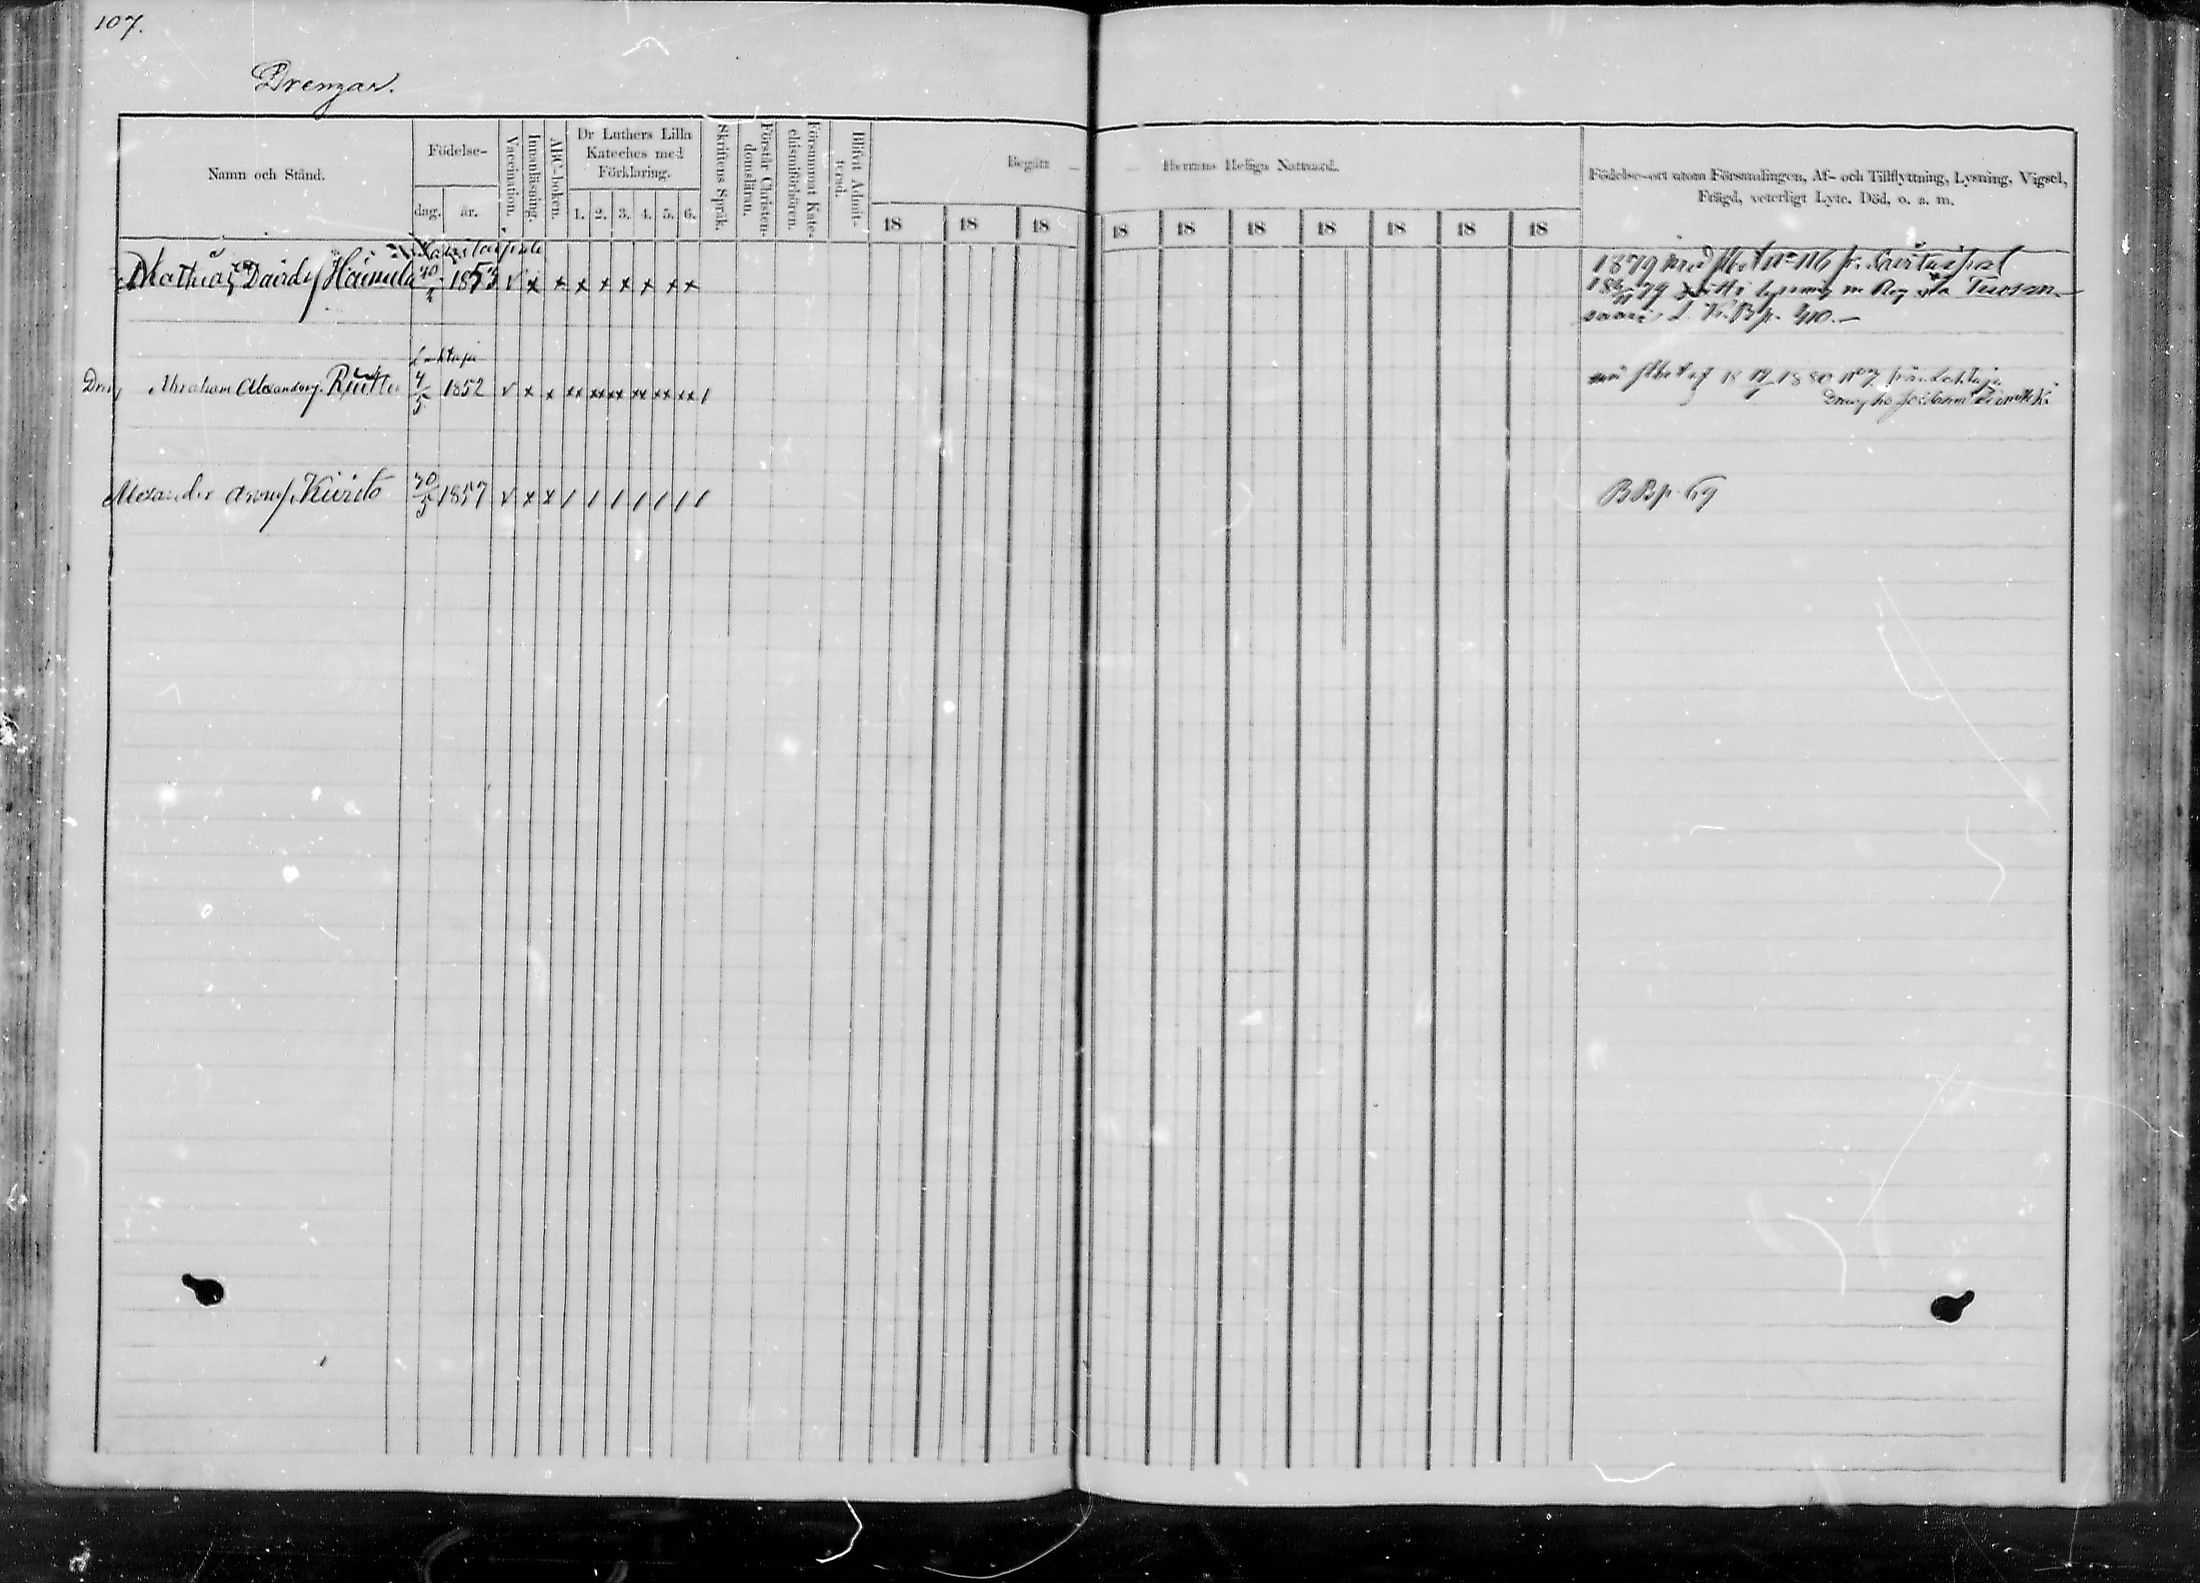 107.
Drengar.
Namn och Stånd.
Födelse-
dag.
år.
Vaccination.
Innanläsning.
ABC-boken.
Dr Luthers Lilla
Kateches med
Förklaring.
1. 2. 3. 4. 5. 6.
Skriftens Språk.
Förstår Christen-
domsläran.
Försummat Kate-
chismiförhören.
Blifvit Admit-
terad.
Begått — — Herrans Heliga Nattvard.
18 18 18 18 18 18 18 18 18 18
Födelse-ort utom Församlingen, Af- och Tillflyttning, Lysning, Vigsel,
Frägd, veterligt Lyte, Död, o. a. m.
Savitaipale
Mathias Davids Häimila 1853 v x x x x x x x x
1879 med flbet No 116 fr. Savitaipal
79 lysning m
saari L. K. B p. 410.—
Drg Abraham Alexanders. 4/5 1852 v x x xx xx xx xx xx xx /
1880 No 7 från
Dreng hos
Alexander 30/5 1857 v x x / / / / / / /
BB p. 69